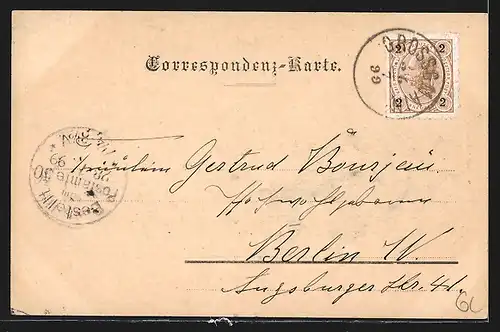 Correspondenz-Karte.
2 2
2 2
GROSS
99
Bestellt
vom
Postamte 30
99
Fräulein Gertrud Bourjeau
Hochwohlgeboren
Berlin W.
Augsburger Str. 41